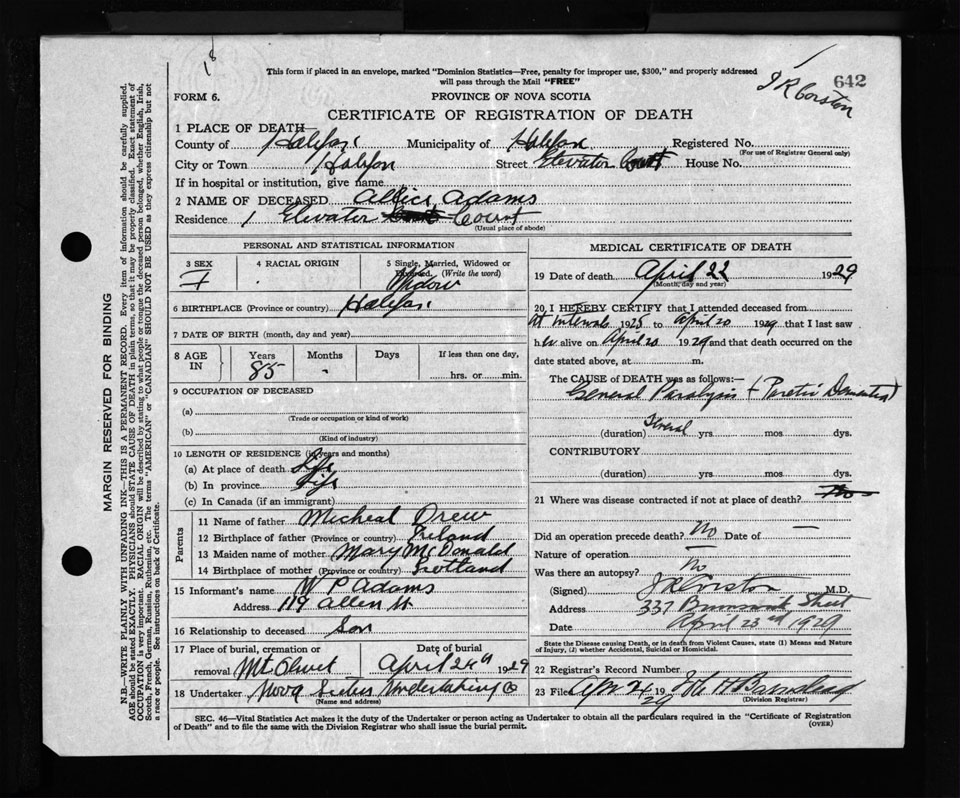 18
This form if placed in an envelope, marked "Dominion Statistics—Free, penalty for improper use, $300," and properly addressed
will pass through the Mail "FREE"
J R Corston
642
FORM 6.
PROVINCE OF NOVA SCOTIA
CERTIFICATE OF REGISTRATION OF DEATH
1 PLACE OF DEATH—
County of Halifax Municipality of Halifax Registered No.
(For use of Registrar General only)
City or Town Halifax Street Elevator Court House No.
If in hospital or institution, give name
2 NAME OF DECEASED Allice Adams
Residence 1 Elevator Court
(Usual place of abode)
PERSONAL AND STATISTICAL INFORMATION
3 SEX
F
4 RACIAL ORIGIN
5 Single, Married, Widowed or
Divorced. (Write the word)
Widow
6 BIRTHPLACE (Province or country) Halifax
7 DATE OF BIRTH (month, day and year)
8 AGE IN
Years
85
Months
Days
If less than one day,
hrs. or min.
9 OCCUPATION OF DECEASED
(a)
(Trade or occupation or kind of work)
(b)
(Kind of industry)
10 LENGTH OF RESIDENCE (in years and months)
(a) At place of death Life
(b) In province Life
(c) In Canada (if an immigrant)
Parents
11 Name of father Micheal Drew
12 Birthplace of father (Province or country) Ireland
13 Maiden name of mother Mary McDonald
14 Birthplace of mother (Province or country) Scotland
15 Informant's name W P Adams
Address 119 Allen St
16 Relationship to deceased Son
17 Place of burial, cremation or
removal Mt. Olivet
Date of burial
April 24th 1929
18 Undertaker Nova Scotia Undertaking Co
(Name and address)
MEDICAL CERTIFICATE OF DEATH
19 Date of death April 22 1929
(Month, day and year)
20 I HEREBY CERTIFY that I attended deceased from
At Intervals 1925 to April 20 1929 that I last saw
her alive on April 20 1929 and that death occurred on the
date stated above, at m.
The CAUSE OF DEATH was as follows:—
General Paralysis (Paretic Dementia)
(duration) Several yrs. mos. dys.
CONTRIBUTORY
(duration) yrs. mos. dys.
21 Where was disease contracted if not at place of death?
Did an operation precede death? No Date of —
Nature of operation —
Was there an autopsy? No
(Signed) J R Corston M.D.
Address 337 Brunswick Street
Date April 23rd 1929
State the Disease causing Death, or in death from Violent Causes, state (1) Means and Nature
of Injury, (2) whether Accidental, Suicidal or Homicidal.
22 Registrar's Record Number
23 Filed Apr 24 1929
(Division Registrar)
SEC. 46—Vital Statistics Act makes it the duty of the Undertaker or person acting as Undertaker to obtain all the particulars required in the "Certificate of Registration
of Death" and to file the same with the Division Registrar who shall issue the burial permit.
(OVER)
MARGIN RESERVED FOR BINDING
N.B.—WRITE PLAINLY WITH UNFADING INK—THIS IS A PERMANENT RECORD. Every item of information should be carefully supplied.
AGE should be stated EXACTLY. PHYSICIANS should STATE CAUSE OF DEATH in plain terms, so that it may be properly classified. Exact statement of
OCCUPATION is very important. RACIAL ORIGIN will be described by stating to what people or race the deceased person belonged, whether English, Irish,
Scotch, French, German, Russian, Ruthenian, etc. The terms "AMERICAN" or "CANADIAN" SHOULD NOT BE USED as they express citizenship but not
a race or people. See instructions on back of Certificate.